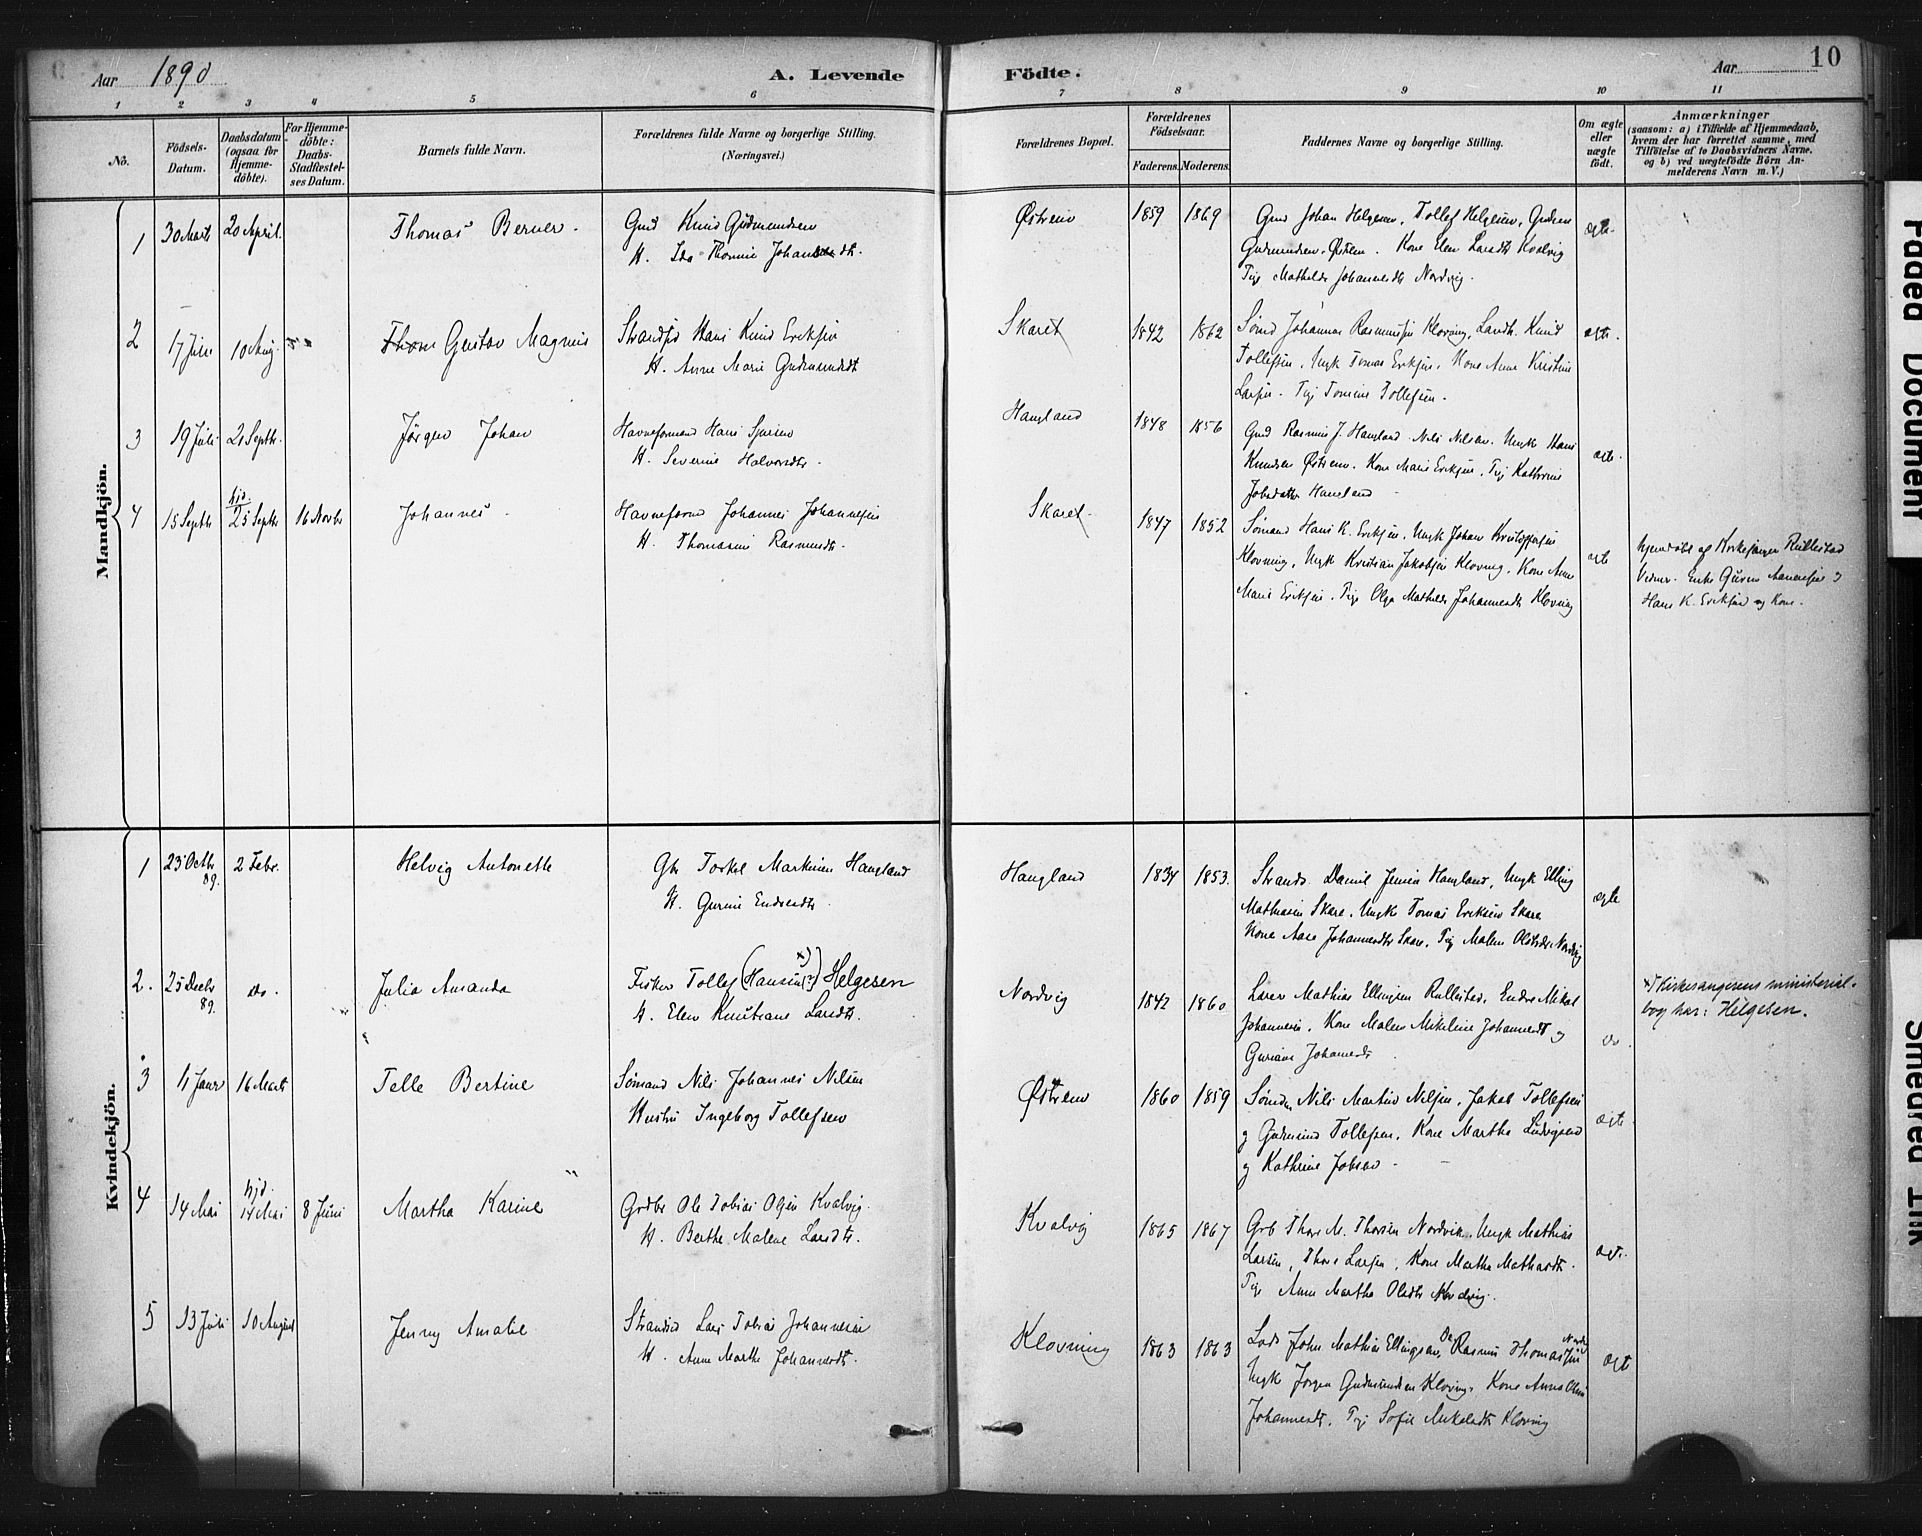 Aar 1890 A. Levende Födte. Aar 10
1 2 3 4 5 6 7 8 9 10 11
No.
Födsels-Datum.
Daabsdatum (ogsaa for Hjemme-döbte).
For Hjemme-döbte: Daabs-Stadfæstel-ses Datum.
Barnets fulde Navn.
Forældrenes fulde Navne og borgerlige Stilling.
(Næringsvei.)
Forældrenes Bopæl.
Forældrenes Födselsaar.
Faderens. Moderens.
Faddernes Navne og borgerlige Stilling.
Om ægte eller uægte födt.
Anmærkninger
(saasom: a) i Tilfælde af Hjemmedaab, hvem der har forrettet samme, med Tilföielse af to Daabsvidners Navne, og b) ved uægtefödte Börn Anmelderens Navn m. V.)
Mandkjön.
1 30 Marts 20 April. Thomas Berner. Gmd Knud Gudmundsen Østrem 1859 1869 Gmd Johan Helgesen, Tollef Helgesen, Gudm ægte
H. Ida Thomine Johansdt. Gudmundsen Østrem. Kone Elen Larsdt Kvalvig
Pige Mathilde Johannesdt Nordvig.
2 17 Juni 10 Aug. Thom Gustav Magnus Strands Hans Knud Eriksen Skaret 1842 1862 Sømd Johannes Rasmussen Klovning, Landh. Knud ægte.
H. Anne Marie Gudmundsdt Tollefsen, Ungk Tomas Eriksen, Kone Anne Kristine
Larsen. Pige Tomine Tollefsen.
3 19 Juli 21 Septbr. Jørgen Johan Havneformand Hans Haugland 1848 1856 Gmd Rasmus J. Haugland. Nils Nilsen. Ungk Hans ægte.
H. Severine Halvorsdtr. Knudsen Østrem. Kone Marie Eriksen, Pige Kathrine
Jobsdatter Haugland
4 15 Septbr hjd. 25 Septbr 16 Novbr Johannes Havneformd Johannes Johannesen Skaret 1847 1852 Sømand Hans K. Eriksen, Ungk Johan Kristoffersen ægte
H. Thomasine Rasmusdtr. Klovning, Ungk Kristian Jakobsen Klovning, Kone Anne
Marie Eriksen. Pige Olga Mathilde Johannesdt Klovning
hjemdøbt af Kirkesanger Rullestad
Vidner. Enke Guren Aanensen &
Hans K. Eriksen og Kone.
Kvindekjön.
1 23 Octbr 89. 2 Febr. Helvig Antonette Gbr Torkel Markusen Haugland Haugland 1834 1853. Strands. Daniel Jensen Haugland, Ungk Elling ægte
H. Gurine Endresdtr. Mathiasen Skare, Ungk Tomas Eriksen Skare
Kone Aase Johannesdtr Skare, Pig Malene Olsdtr Nordvig
2. 25 Decbr 89. do. Julia Amanda Fisker Tollef (Hansen x) (?)) Helgesen Nordvig 1842 1860 Lærer Mathias Ellingsen Rullestad, Endre Mikal do.
H. Elen Knutiane Larsdtr. Johannesen, Kone Malene Mikeline Johannesdt og
Guriane Johannesdt
x) Kirkesangerens ministerial-
bog har: Helgesen.
3 11 Janr 16 Marts Telle Bertine Sømand Nils Johannes Nilsen Østrem 1860 1859 Sømdn Nils Martin Nilsen, Jakob Tollefsen ægte.
Hustru Ingeborg Tollefsen & Gudmund Tollefsen, Kone Martha Ludvigsen
& Kathrine Jobsen.
4 14 Mai hjd. 14 Mai 8 Juni Martha Karine Grdbr Ole Tobias Olsen Kvalvig. Kvalvig 1865 1867 Grb Thore M. Thorsen Nordvik, Ungk Mathias ægt.
H. Berthe Malene Larsdtr. Larsen, Thore Larsen, Kone Martha Mathiasdt.
Pige Anne Marthe Olsdtr Kvalvig.
5 13 Juli 10 August Jenny Amalie Strandsd Lars Tobias Johannesen Klovning 1863 1863 Lods John Mathias Ellingsen, Rasmus Thomassen ægt
H. Anne Marthe Johannesdt. Ungk Jørgen Gudmundsen Klovning, Kone Anne Oline
Johannesdt. Pige Sofie Mikalsdt Klovning
Faded Document
Smeared Ink